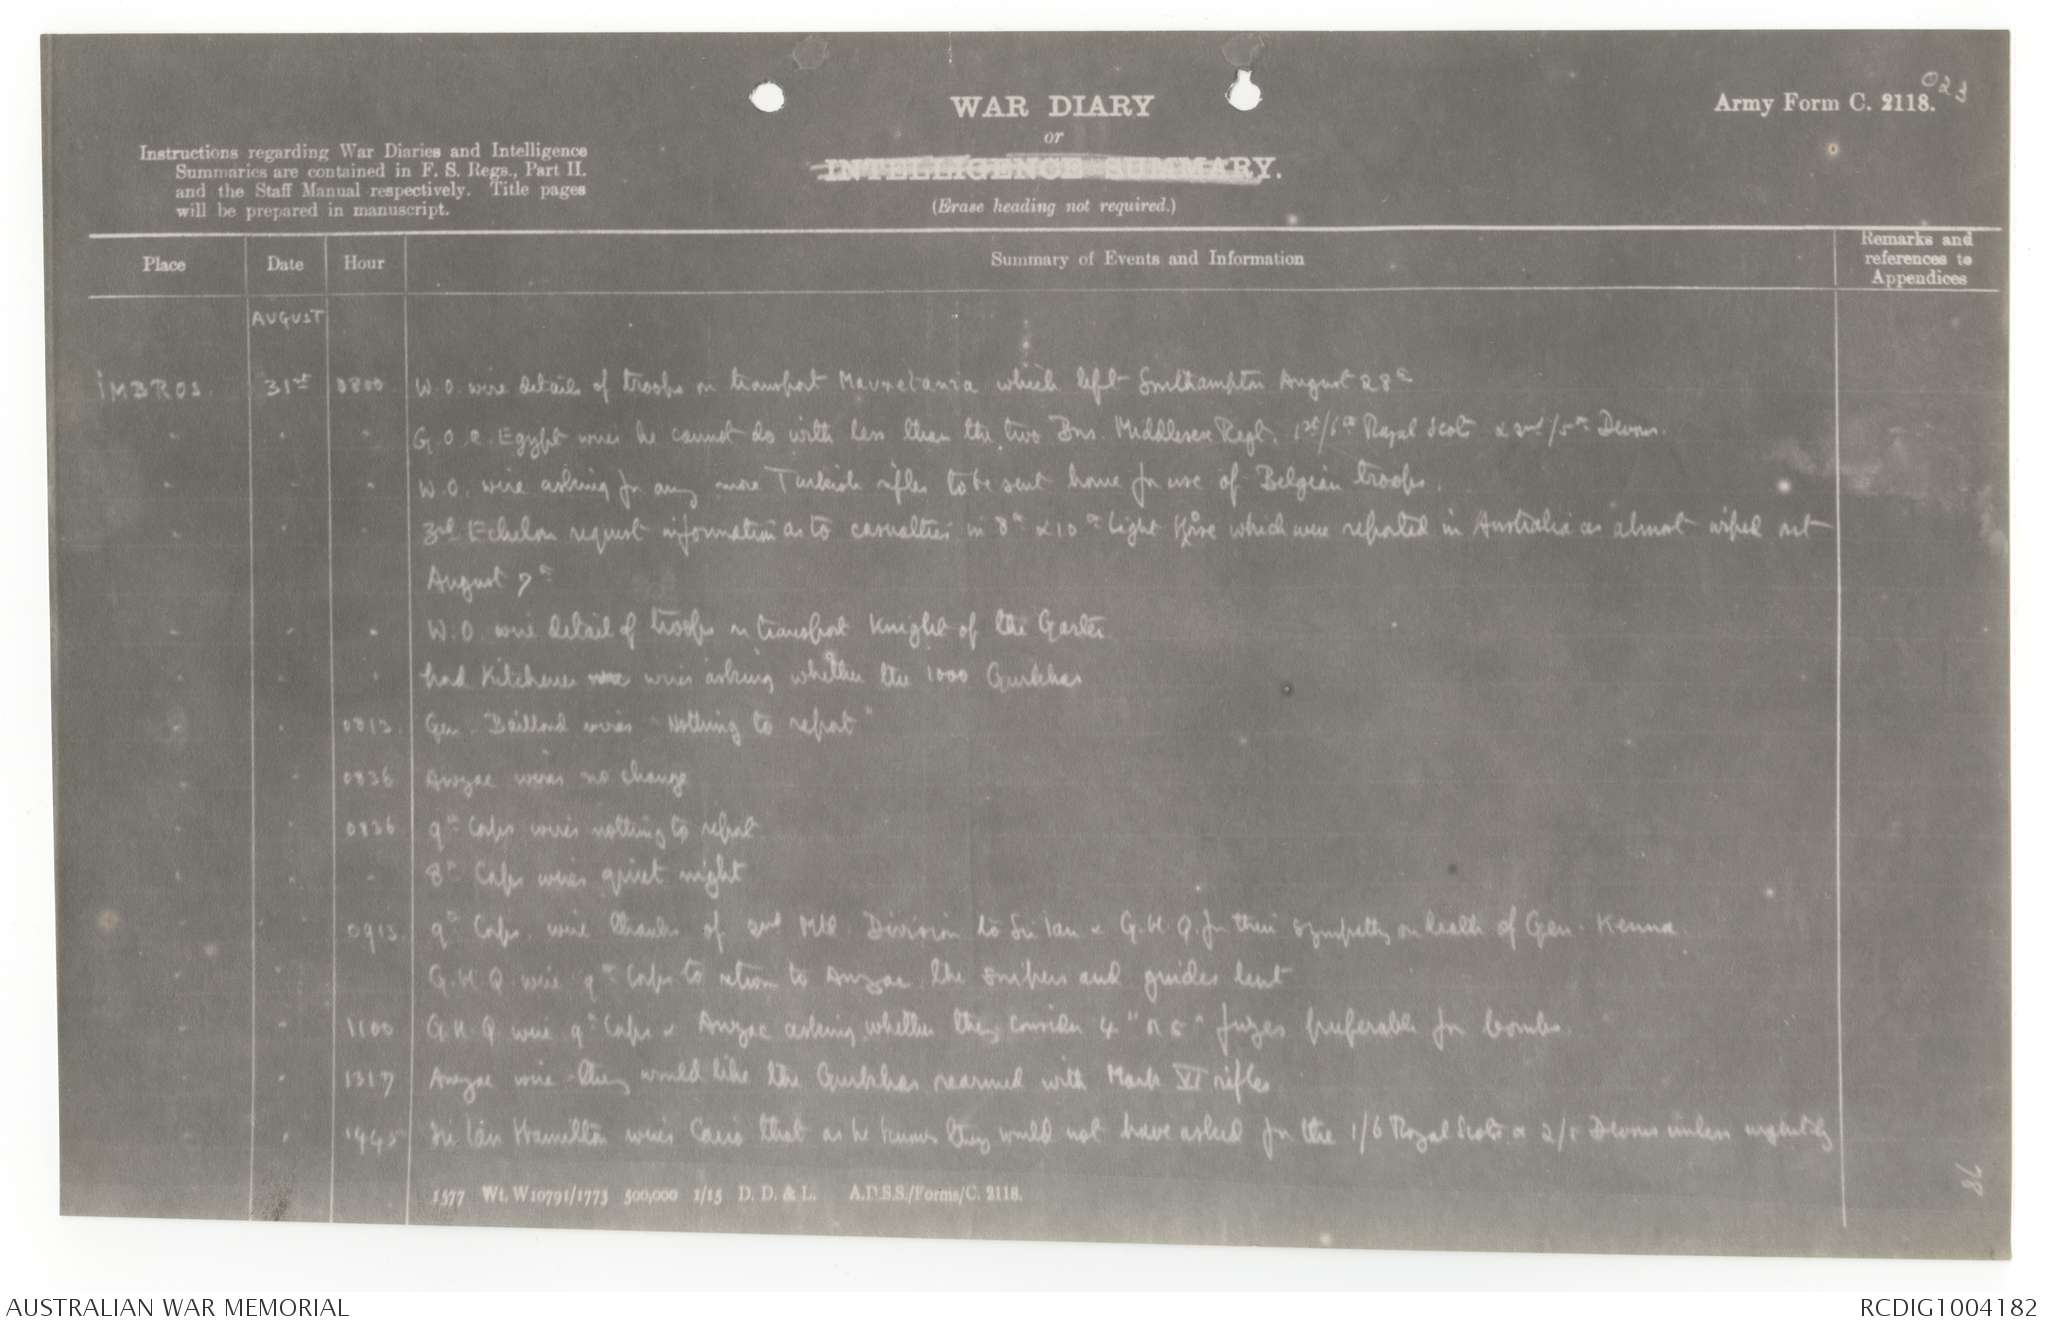 023
Army Form C. 2118.
WAR DIARY
or
INTELLIGENCE SUMMARY.
(Erase heading not required.)
Instructions regarding War Diaries and Intelligence
Summaries are contained in F. S. Regs., Part II.
and the Staff Manual respectively. Title pages
will be prepared in manuscript.
Place Date Hour Summary of Events and Information Remarks and references to Appendices
AUGUST
IMBROS. 31st 0800 W.O. wire details of troops on transport Mauretania which left Southampton August 28th
" " " G.O.C. Egypt wires he cannot do with less than the two Bns. Middlesex Regt. 1st/6th Royal Scots & 2nd/5th Devons.
" " " W.O. wire asking for any more Turkish rifles to be sent home for use of Belgian troops.
" " " 3rd Echelon request information as to casualties in 8th & 10th Light Horse which were reported in Australia as almost wiped out
August 7th
" " " W.O. wire detail of troops on transport Knight of the Garter
" " " Lord Kitchener wires asking whether the 1000 Gurkhas
" " 0813. Gen. wires "Nothing to report"
" " 0836 Anzac wires no change
" " 0836 9th Corps wires nothing to report
" " " 8th Corps wires quiet night
" " 0913. 9th Corps wire thanks of 2nd Mtd. Division to Sir Ian & G.H.Q. for their sympathy on death of Gen. Kenna.
" " " G.H.Q. wire 9th Corps to return to Anzac the snipers and guides lent
" " 1100 G.H.Q. wire 9th Corps & Anzac asking whether they consider 4" or 5" fuzes preferable for bombs.
" " 1317 Anzac wire they would like the Gurkhas rearmed with Mark VI rifles
" " 1945 Sir Ian Hamilton wires Cairo that as he knows they would not have asked for the 1/6 Royal Scots & 2/5 Devons unless urgently
1577 Wt. W10791/1773 500,000 1/15 D. D. & L. A.D.S.S./Forms/C. 2118.
AUSTRALIAN WAR MEMORIAL
RCDIG1004182